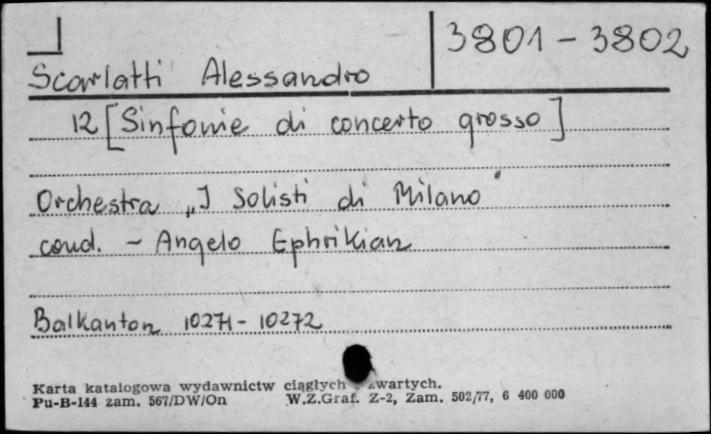 3801 - 3802
Scarlatti Alessandro
12 [Sinfonie di concerto grosso]
Orchestra „I Solisti di Milano"
cond. - Angelo Ephrikian
Balkanton 10271 - 10272
Karta katalogowa wydawnictw ciągłych zwartych.
Pu-B-144 zam. 567/DW/On W.Z.Graf. Z-2, Zam. 502/77, 6 400 000